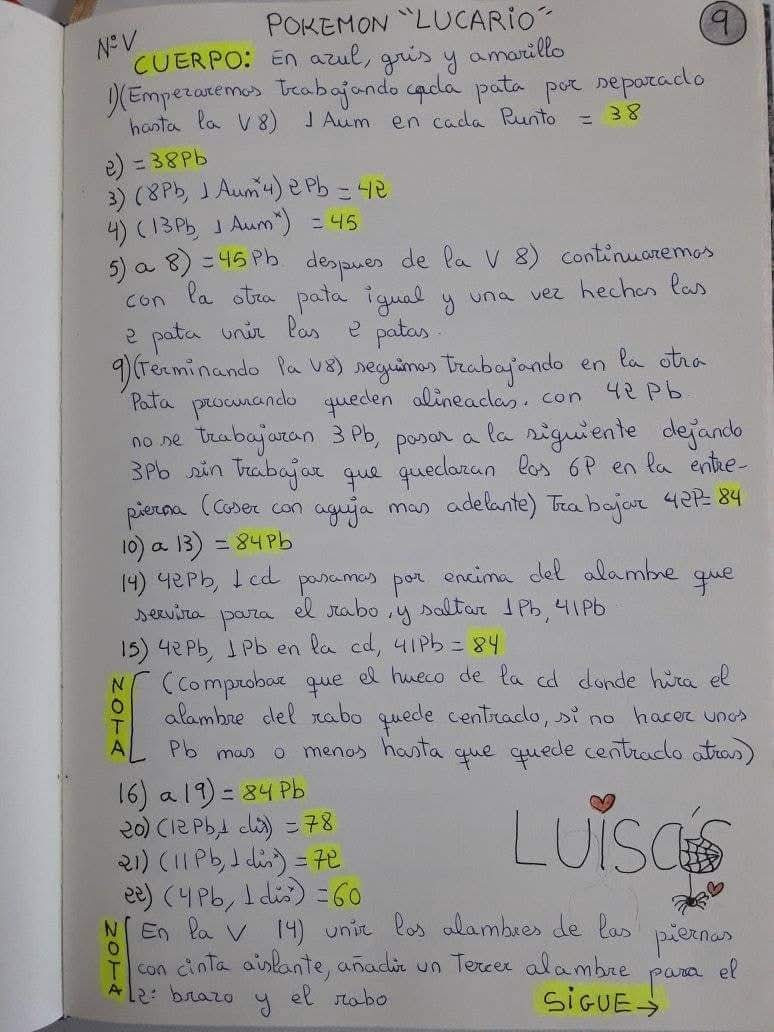 NºV
POKEMON "LUCARIO"
9
CUERPO: En azul, gris y amarillo
1)(Empezaremos trabajando cada pata por separado
hasta la V 8) 1 Aum en cada Punto = 38
2) = 38Pb
3) (8Pb, 1 Aum*4) 2Pb = 42
4) (13Pb, 1 Aum*) = 45
5) a 8) = 45 Pb. despues de la V 8) continuaremos
con la otra pata igual y una vez hechas las
2 pata unir las 2 patas.
9)(Terminando la V8) seguimos trabajando en la otra
Pata procurando queden alineadas. con 42 Pb
no se trabajaran 3Pb, pasar a la siguiente dejando
3Pb sin trabajar que quedaran los 6P en la entre-
pierna (coser con aguja mas adelante) Trabajar 42P= 84
10) a 13) = 84Pb
14) 42Pb, 1 cd pasamos por encima del alambre que
servira para el rabo, y saltar 1Pb, 41Pb
15) 42Pb, 1Pb en la cd, 41Pb = 84
NOTA
(Comprobar que el hueco de la cd donde hira el
alambre del rabo quede centrado, si no hacer unos
Pb mas o menos hasta que quede centrado atras)
16) a 19) = 84Pb
20) (12Pb, 1 dis) = 78
21) (11Pb, 1 dis*) = 72
22) (4Pb, 1 dis*) = 60
LUISA'S
NOTA
En la V 14) unir los alambres de las piernas
con cinta aislante, añadir un Tercer alambre para el
2º brazo y el rabo
SIGUE→